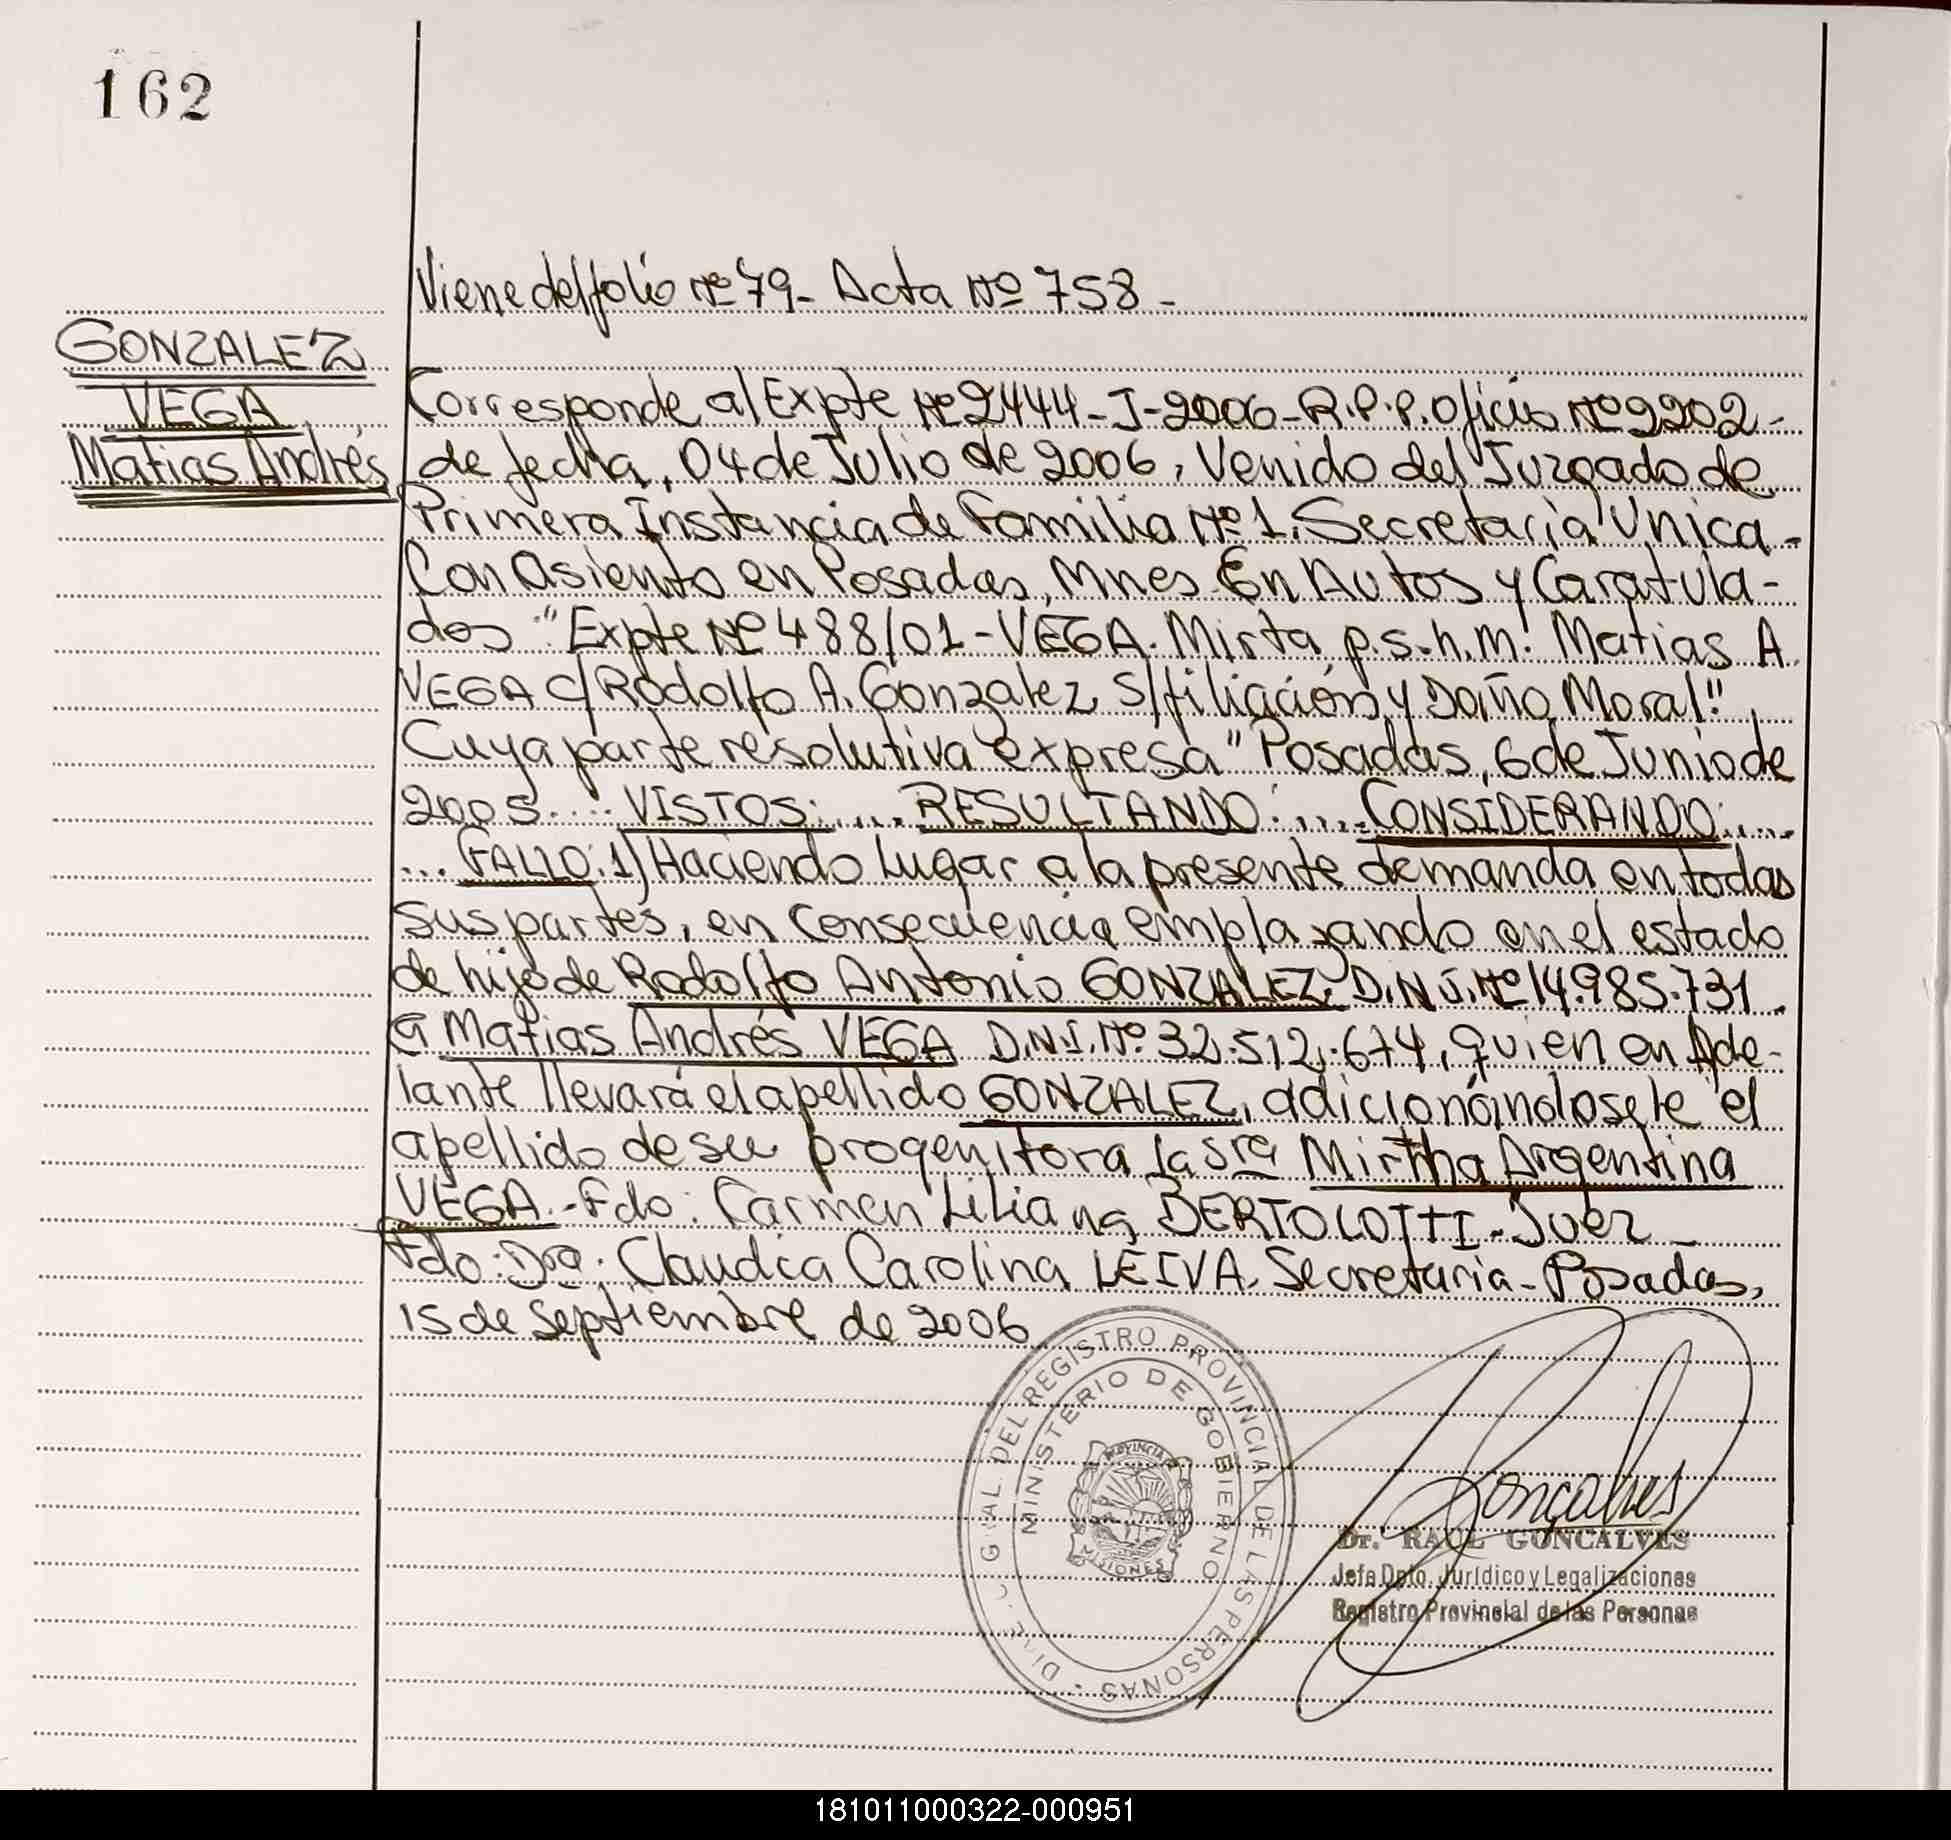 162
Viene del folio Nº 79- Acta Nº 758-
GONZALEZ
VEGA
Matias Andrés
Corresponde al Expte Nº 2444-J-2006-R.P.P. Oficio Nº 2202-
de fecha, 04 de Julio de 2006, Venido del Juzgado de
Primera Instancia de Familia Nº 1. Secretaría Unica-
Con Asiento en Posadas, Mnes. En Autos y Caratula-
dos "Expte Nº 488/01-VEGA. Mirta p.s.h.m. Matias A.
VEGA c/Rodolfo A. Gonzalez S/filiación y Daño Moral".
Cuya parte resolutiva expresa "Posadas, 6 de Junio de
2005.... VISTOS:.... RESULTANDO:.... CONSIDERANDO:....
... FALLO: 1) Haciendo Lugar a la presente demanda en todas
sus partes, en consecuencia emplazando en el estado
de hijo de Rodolfo Antonio GONZALEZ, D.N.I. Nº 14.985.731.
a Matias Andrés VEGA D.N.I. Nº 32.512.674, quien en Ade-
lante llevará el apellido GONZALEZ, adicionándosele el
apellido de su progenitora la Sra Mirtha Argentina
VEGA.- Fdo: Carmen Liliana BERTOLOTTI-Juez-
Fdo: Dra. Claudia Carolina LEIVA. Secretaria-Posadas,
15 de Septiembre de 2006
DEL REGISTRO PROVINCIAL DE LAS PERSONAS
MINISTERIO DE GOBIERNO
PROVINCIA
MISIONES
Gonçalves
Dr. RAUL GONCALVES
Jefe Dpto. Jurídico y Legalizaciones
Registro Provincial de las Personas
181011000322-000951